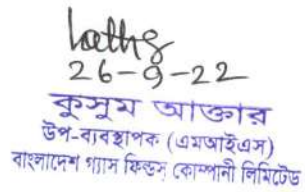 26-9-22
কুসুম আক্তার
উপ-ব্যবস্থাপক (এমআইএস)
বাংলাদেশ গ্যাস ফিল্ডস্ কোম্পানী লিমিটেড